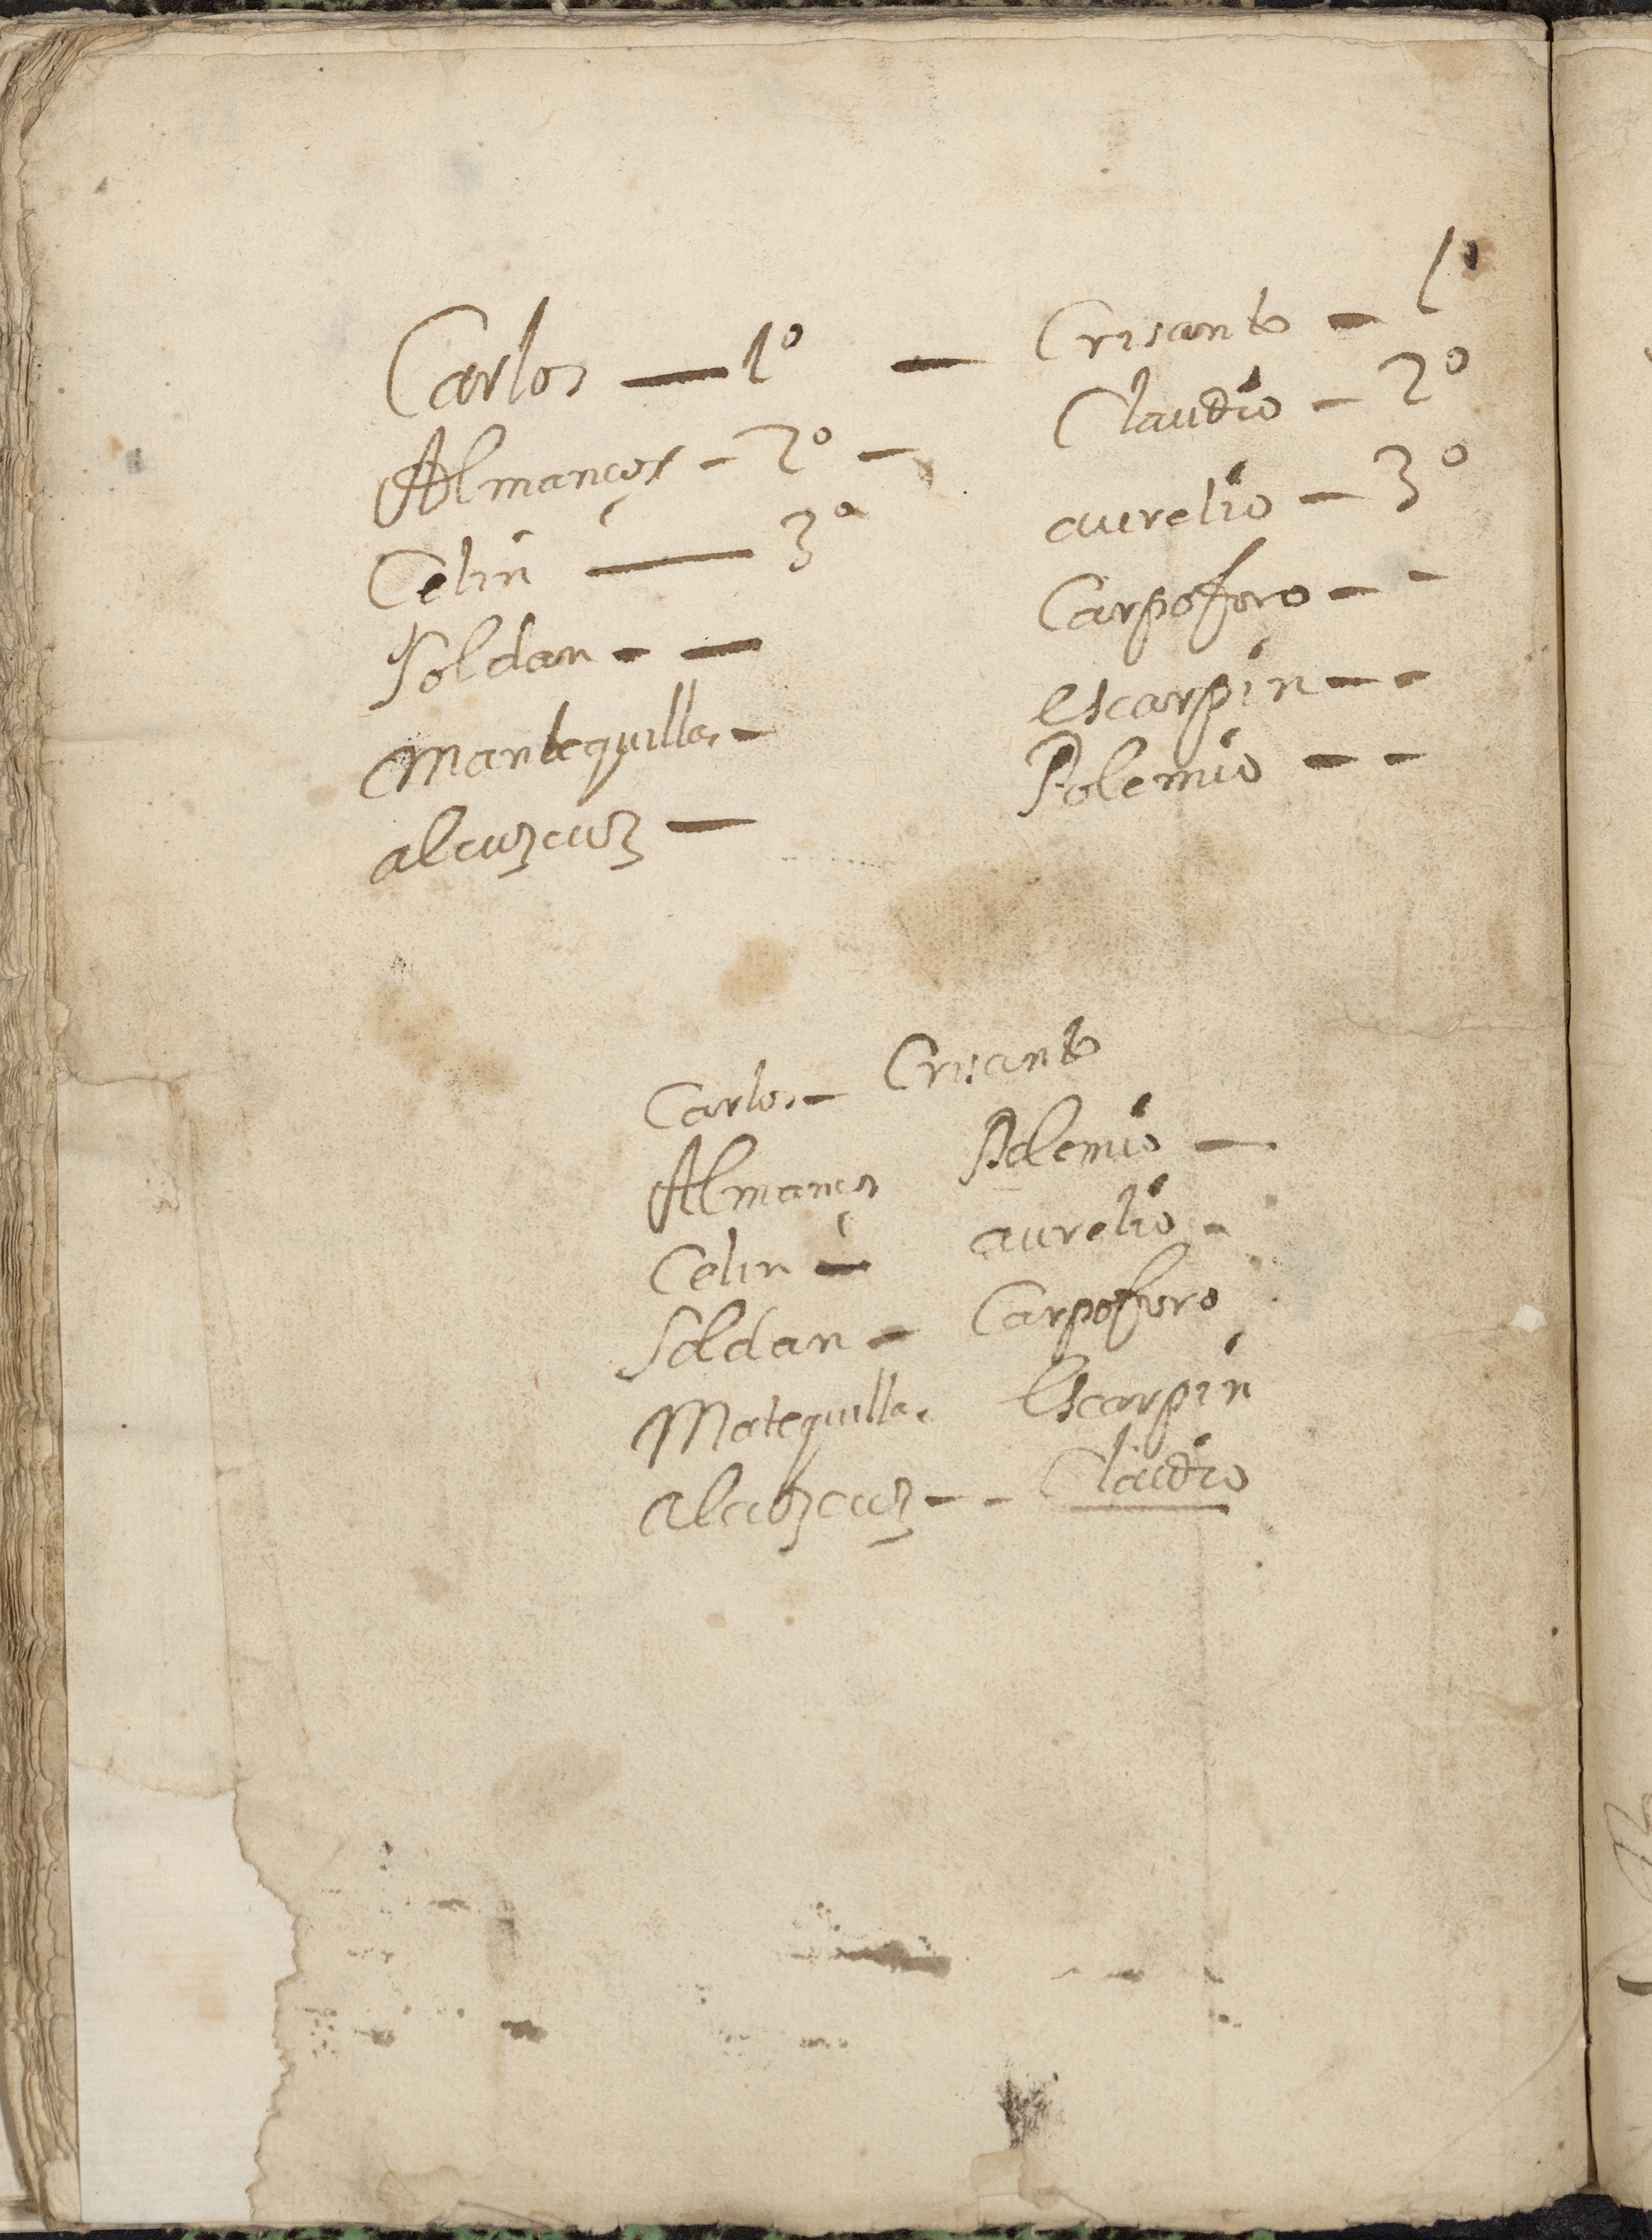 Carlos — 1º — Crisanto — 1º
Almançor — 2º — Claudio — 2º
Celin — 3º aurelio — 3º
Soldan - — Carpoforo - -
Mantequillas - escarpin - -
alcuzcuz — Polemio - -
Carlos - Crisanto
Almançor Polemio —
Celin — aurelio -
Soldan - Carpoforo
Matequillas Escarpin
alcuzcuz - - Claudio